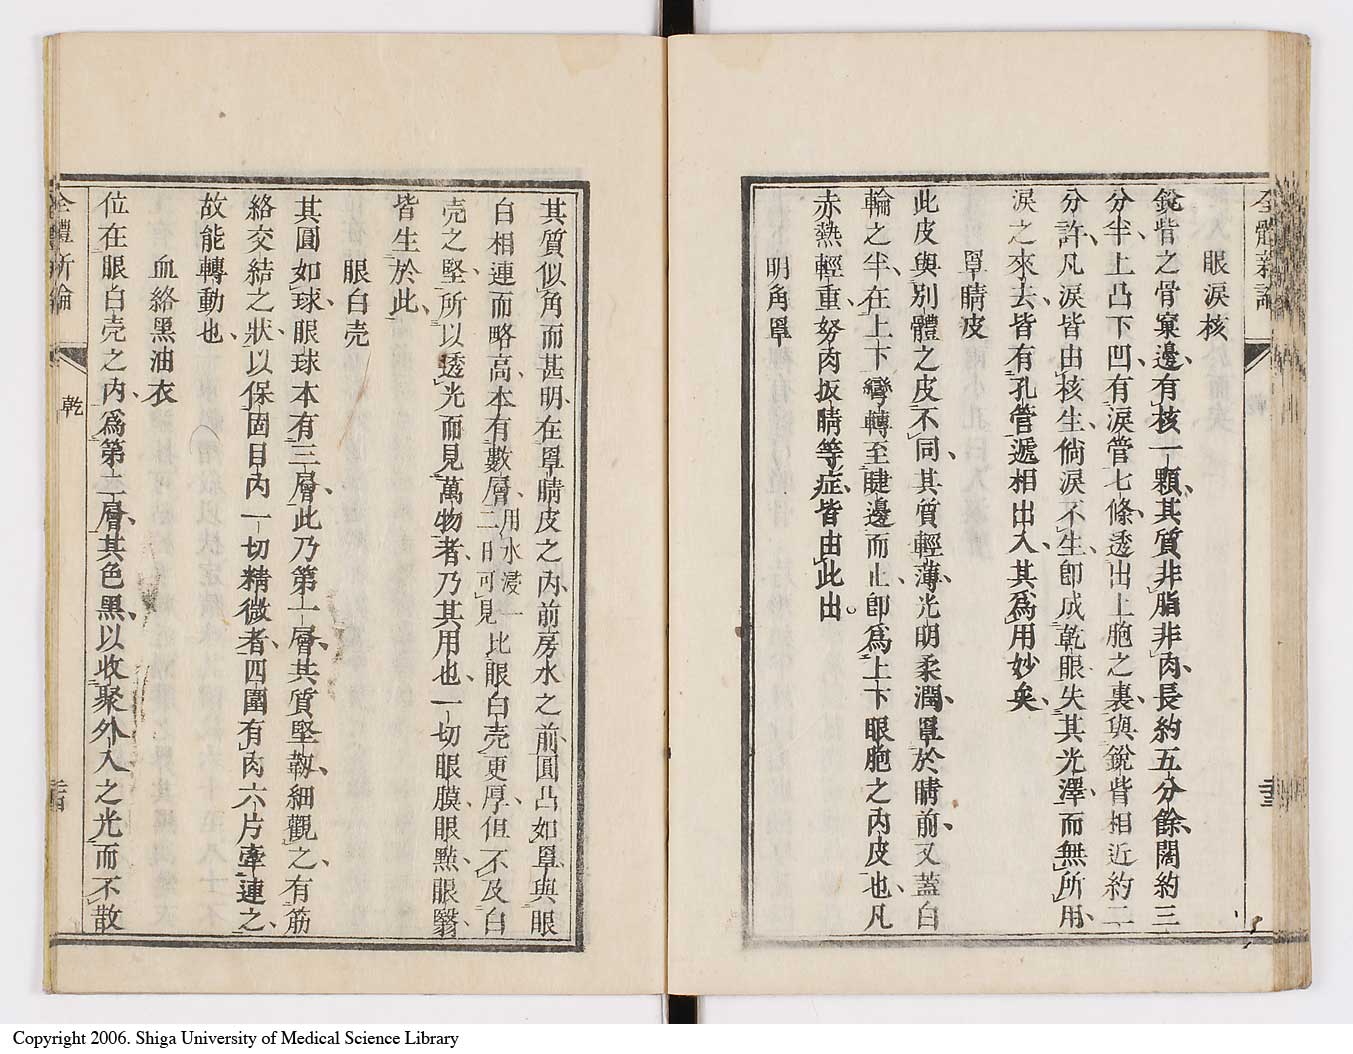 全體新論
眼淚核
銳眥之骨窠邊有核一顆其質非脂非肉長約五分餘闊約三
分半上凸下凹有淚管七條透出上胞之裏與銳眥相近約二
分許凡淚皆由核生倘淚不生卽成乾眼失其光澤而無所用
淚之來去皆有孔管遞相出入其爲用妙矣
罩睛皮
此皮與別體之皮不同其質輕薄光明柔潤罩於睛前又蓋白
輪之半在上下彎轉至睫邊而止卽爲上下眼胞之內皮也凡
赤熱輕重努肉扳睛等症皆由此出
明角罩
其質似角而甚明在罩睛皮之內前房水之前圓凸如罩與眼
白相連而略高本有數層用水浸一二日可見比眼白壳更厚但不及白
壳之堅所以透光而見萬物者乃其用也一切眼膜眼㸃眼翳
皆生於此
眼白壳
其圓如球眼球本有三層此乃第一層其質堅韌細觀之有筋
絡交結之狀以保固目內一切精微者四圍有肉六片牽連之
故能轉動也
血絡黑油衣
位在眼白壳之內爲第二層其色黑以收聚外入之光而不散
全體新論
乾
Copyright 2006. Shiga University of Medical Science Library